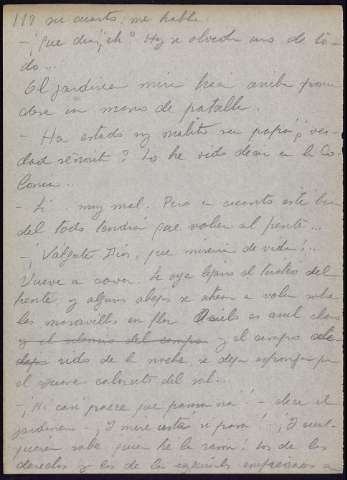 118 su cuarto, me habla.
—¡Que dia, eh! Hoy se olvida uno de to-
do...
El jardinero mira hacia arriba
con una mano de pantalla.
— Ha estado muy malito su papá, ¿ver-
dad señorito? Lo he oido decir en la Co-
lonia..
— Sí muy mal. Pero en cuanto esté bien
del todo tendrá que volver al frente...
—¡Valgame Dios, que miseria de vida!...
Vuelve a cavar. Se oye lejos el tiroteo del
frente y algunas abejas se atreven a volar sobre
las maravillas en flor. El cielo es azul claro
y el silencio del campo y el campo
de la noche, se deja esponjar por
el suave calorcito del sol.
—¡Ni casi parece que pasara na! — dice el
jardinero — ¡Y mire usté si pasa! ¡Y cual-
quiera sabe quien lleva la razón! Los de los
derechos y los de los izquierdos empezaron a